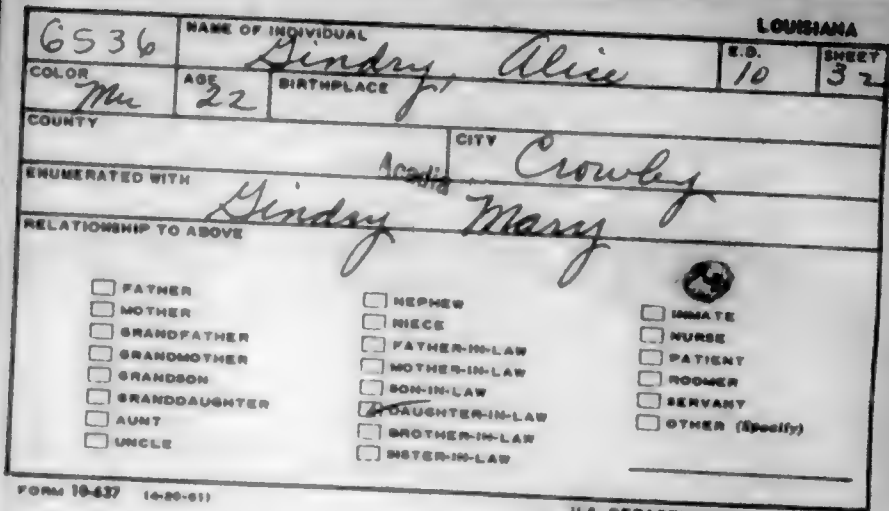 LOUISIANA
6536 NAME OF INDIVIDUAL Gindry, Alice E.D. 10 SHEET 32
COLOR Mu AGE 22 BIRTHPLACE
COUNTY Acadia CITY Crowley
ENUMERATED WITH Gindry Mary
RELATIONSHIP TO ABOVE
FATHER
MOTHER
GRANDFATHER
GRANDMOTHER
GRANDSON
GRANDDAUGHTER
AUNT
UNCLE
NEPHEW
NIECE
FATHER-IN-LAW
MOTHER-IN-LAW
SON-IN-LAW
DAUGHTER-IN-LAW
BROTHER-IN-LAW
SISTER-IN-LAW
INMATE
NURSE
PATIENT
ROOMER
SERVANT
OTHER (Specify)
FORM 10-637 (4-20-61)